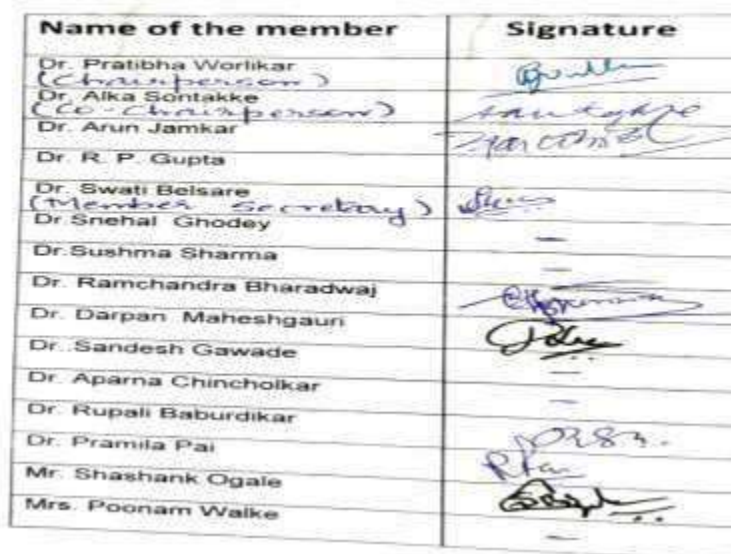 Name of the member Signature
Dr. Pratibha Worlikar
(Chairperson)
Dr. Alka Sontakke
(Co-Chairperson)
Dr. Arun Jamkar
Dr. R. P. Gupta
Dr. Swati Belsare
(Member Secretary)
Dr.Snehal Ghodey -
Dr.Sushma Sharma -
Dr. Ramchandra Bharadwaj
Dr. Darpan Maheshgauri
Dr..Sandesh Gawade -
Dr. Aparna Chincholkar -
Dr. Rupali Baburdikar
Dr. Pramila Pai
Mr. Shashank Ogale
Mrs. Poonam Walke -